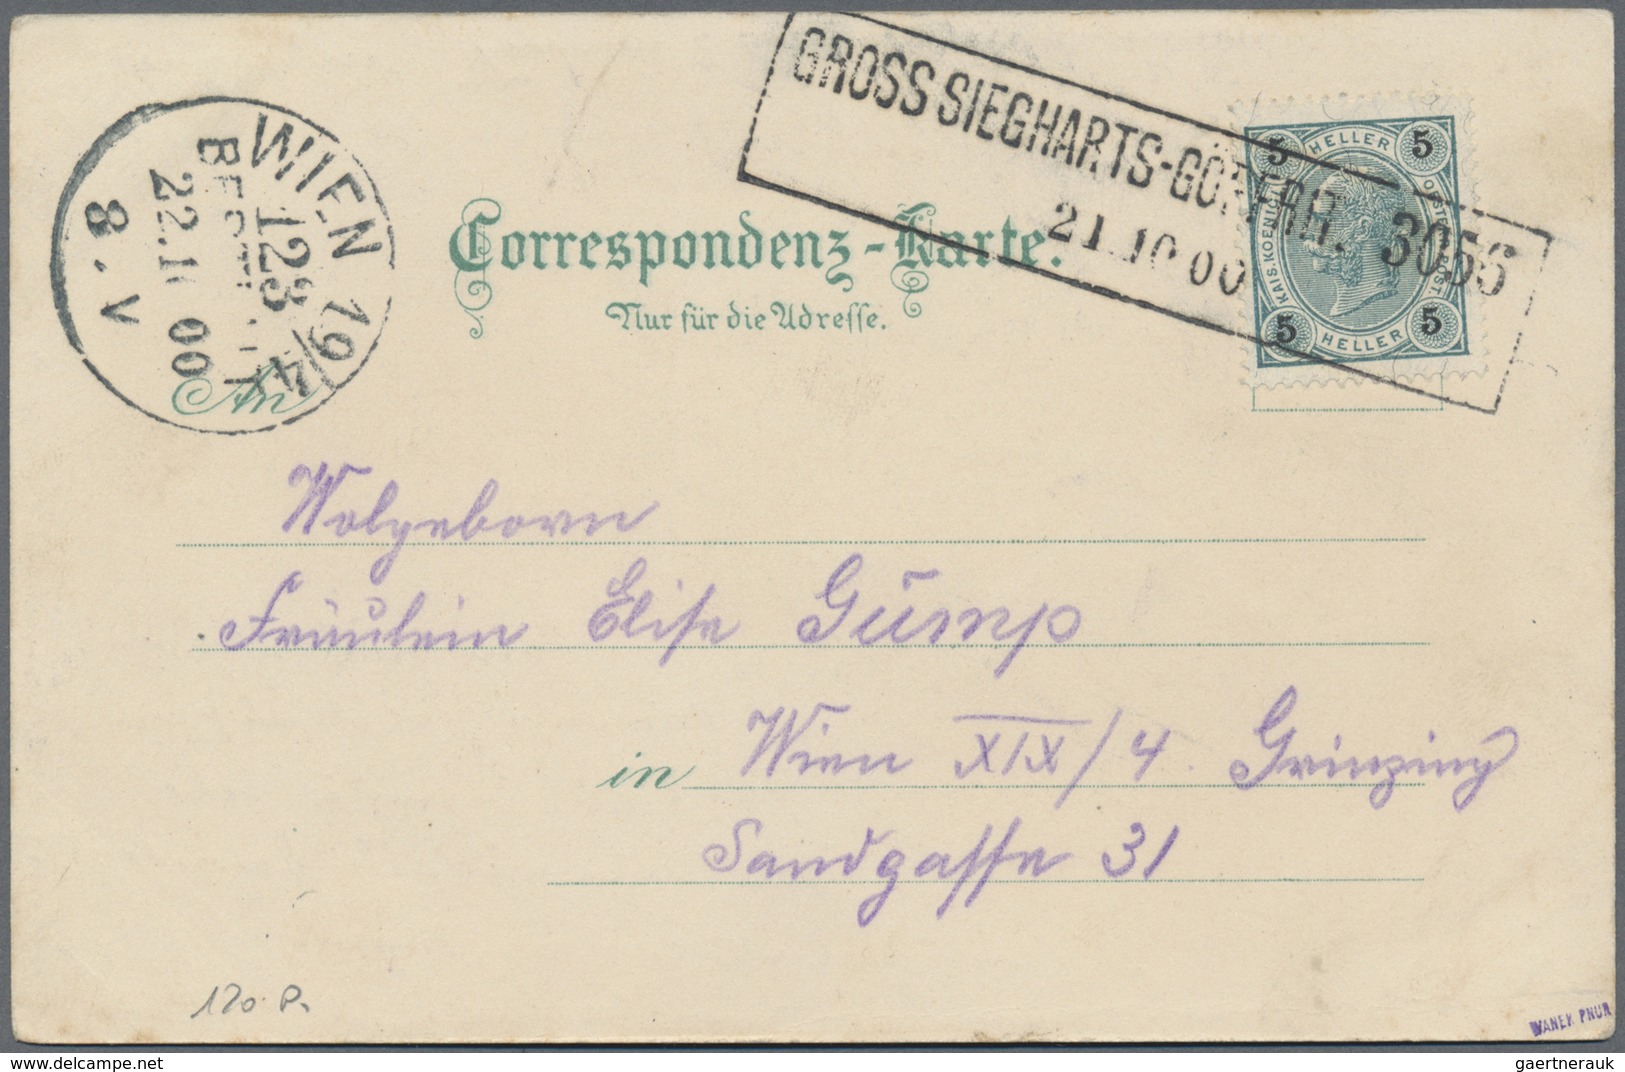 GROSS SIEGHARTS-GÖPFRIT. 3056
21.10 00
WIEN 19/4
123
BESTELLT
22.10 00
8.V
5 HELLER 5
KAIS. KOENIGL. OESTERR. POST.
5 HELLER 5
Correspondenz-Karte.
Nur für die Adresse.
An
Wolgeborn
Fräulein Elise Gump
in Wien XIX/4. Grinzing
Sandgasse 31
120.P.
gaertnerauk